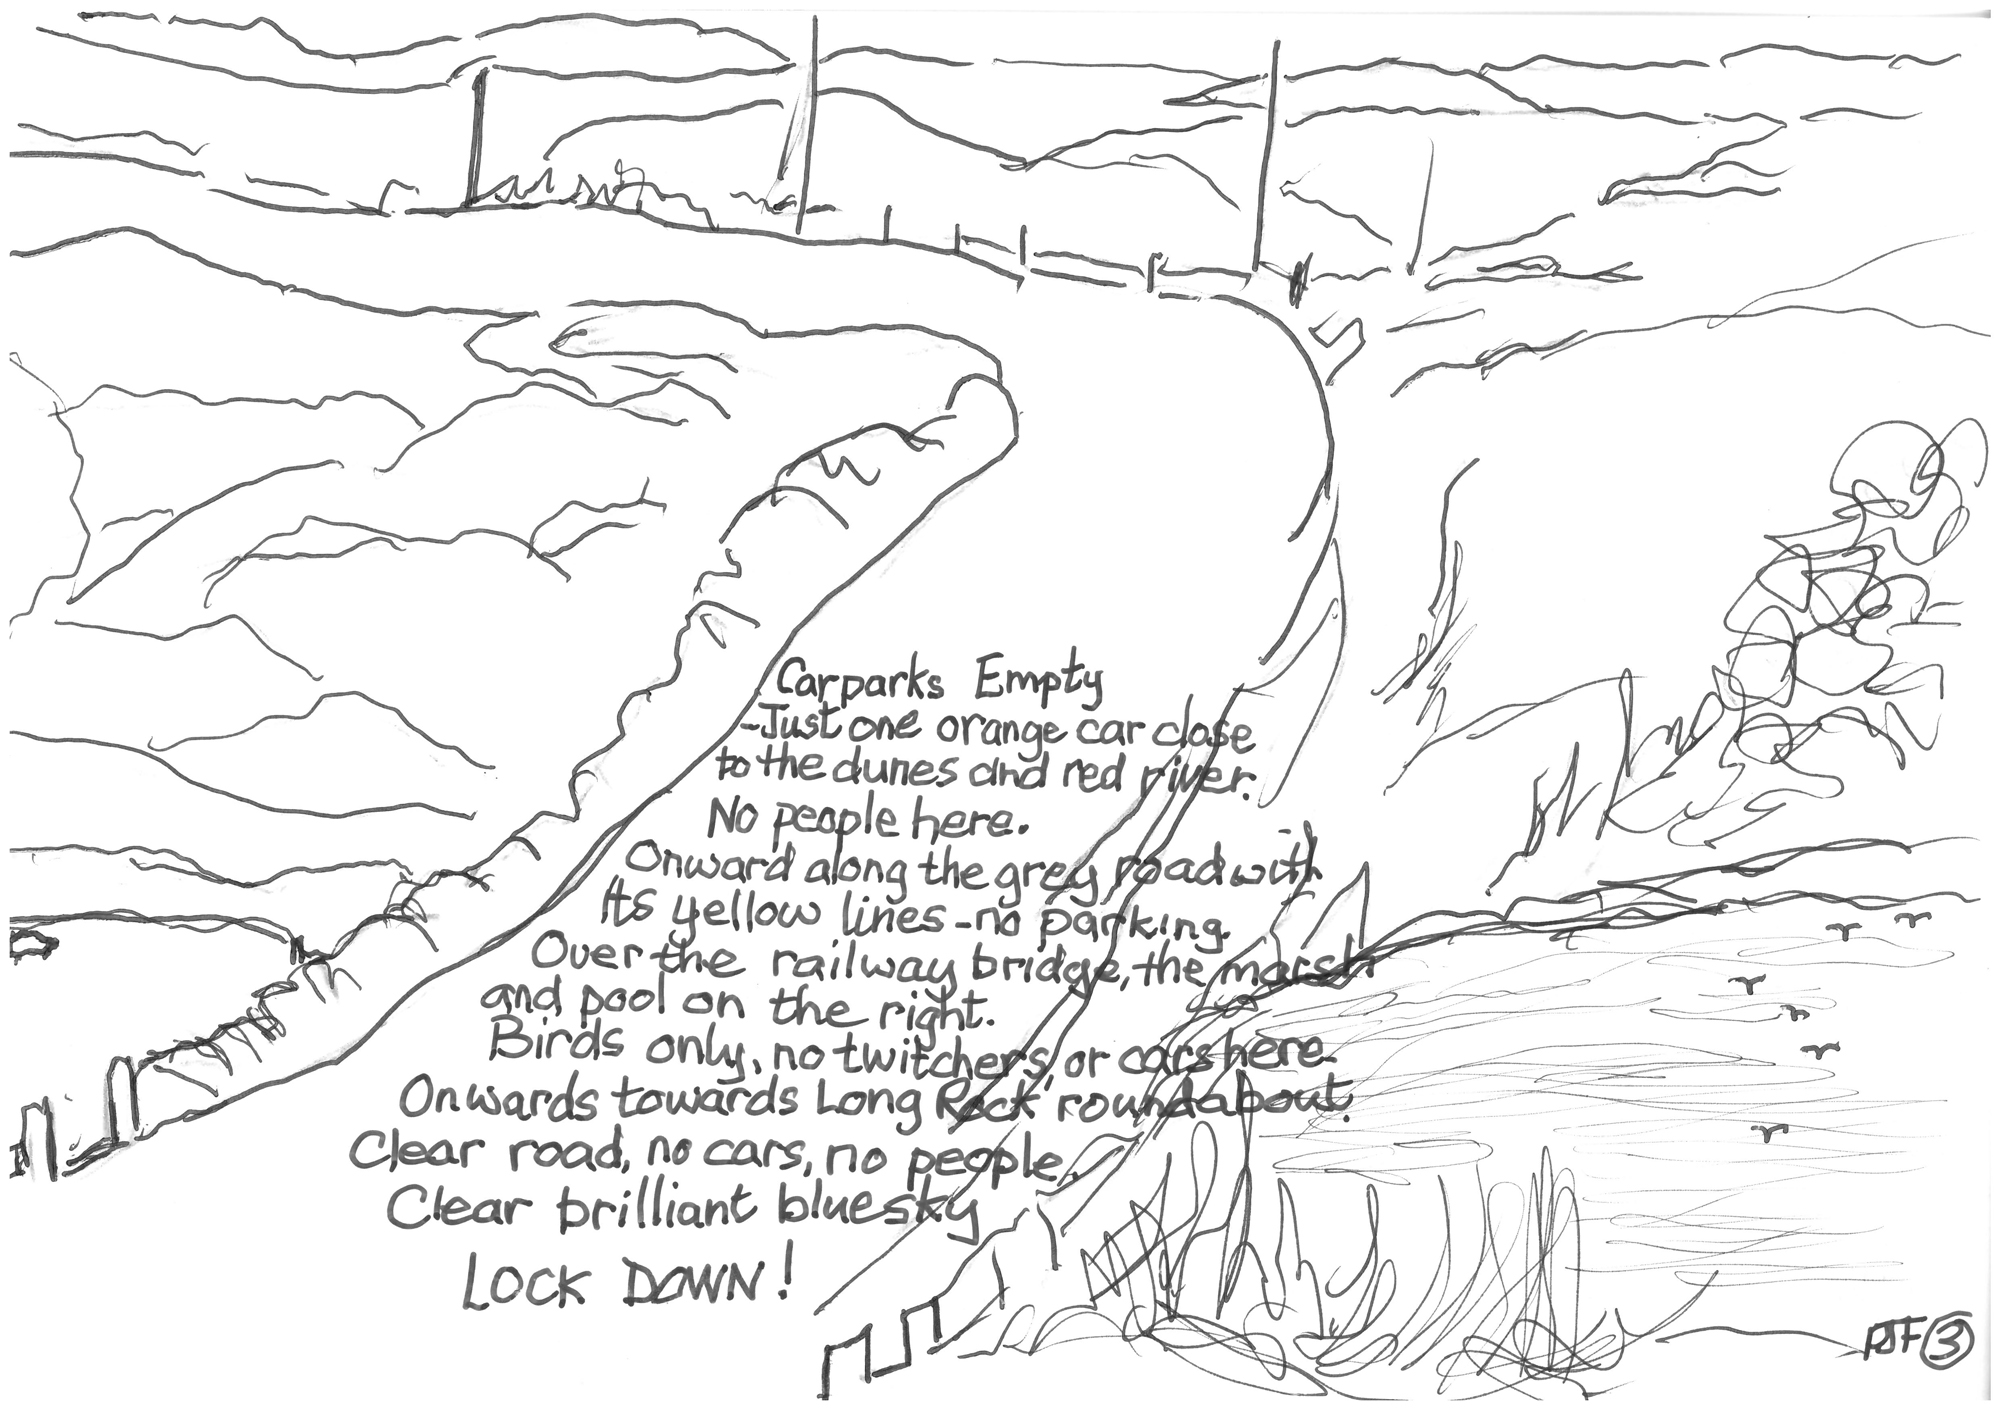 Carparks Empty
-Just one orange car close
to the dunes and red river.
No people here.
Onward along the grey road with
its yellow lines - no parking.
Over the railway bridge, the marsh
and pool on the right.
Birds only, no twitchers, or cars here.
Onwards towards Long Rock roundabout.
Clear road, no cars, no people.
Clear brilliant blue sky
LOCK DOWN!
PJF 3